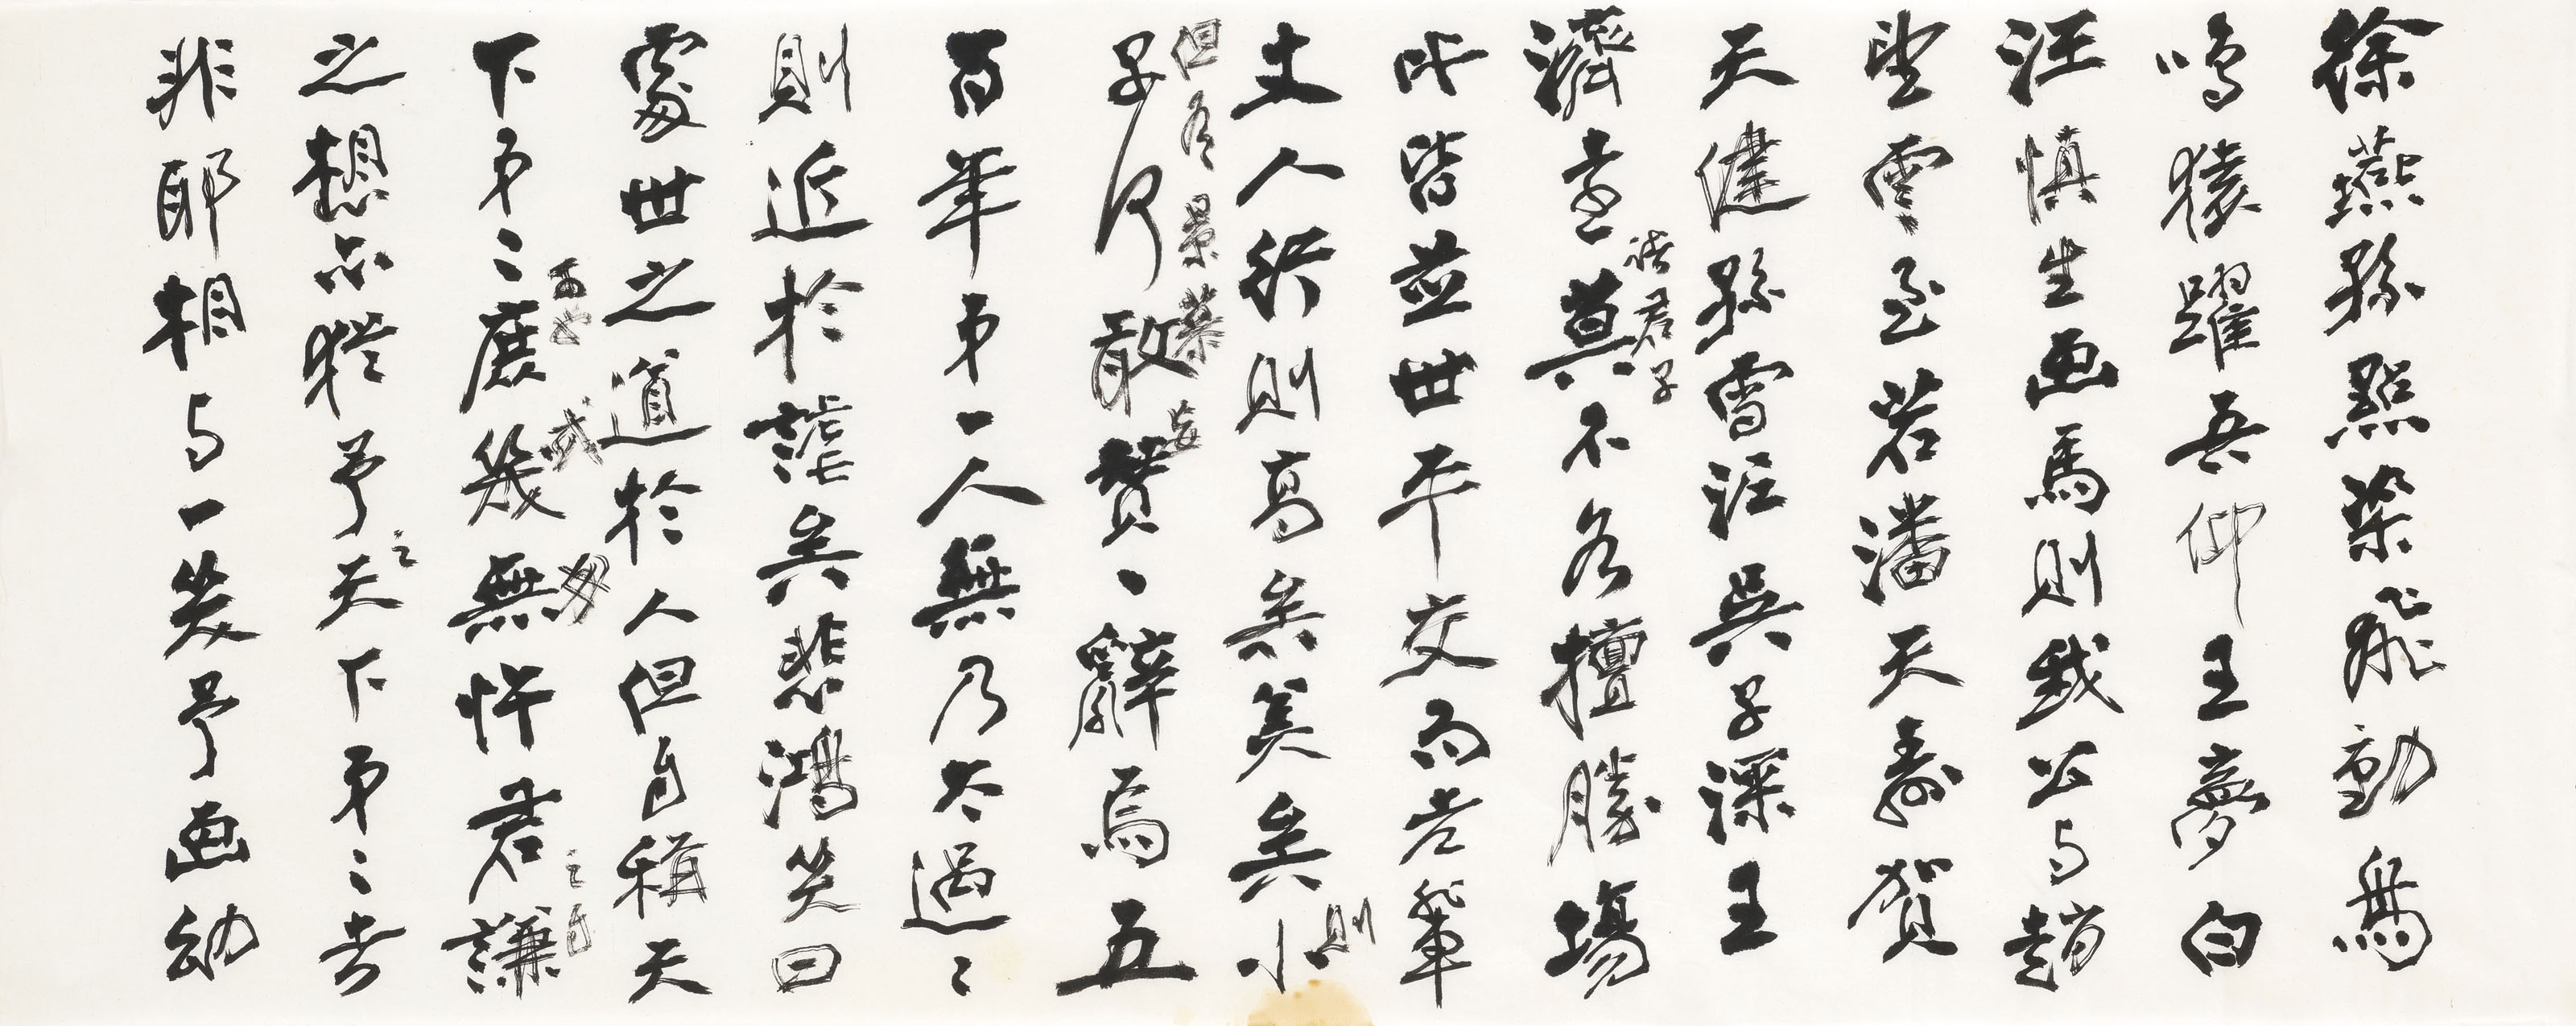 徐燕孫點染飛動為
鳴猿躍吾仰王夢白
汪慎生画馬則我公与趙
望雲至若潘天壽賀
天健孫雪泥吳子深王
濟遠諸君子莫不各擅勝場
此皆並世平交而老輩
丈人行則高矣美矣則小
子但有景慕何敢妄贊一辭焉五
百年第一人無乃太過之
則近於謔矣悲鴻笑曰
處世之道於人但自稱天
下第二庶幾無忤君謙
之想亦猶予之天下第二者
非耶相与一笑予画幼